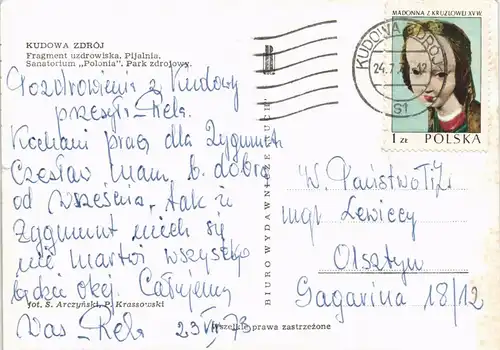 KUDOWA ZDRÓJ
Fragment uzdrowiska. Pijalnia.
Sanatorium „Polonia". Park zdrojowy.
Pozdrowienia z Kudowy
przesyła Rela.
Kochani pracę dla Zygmunta
Czesław mam. b. dobrą
od września, tak iż
Zygmunt niech się
nie martwi wszystko
będzie okej. Całujemy
fot. S. Arczyński, P. Krassowski
Was Rela 23 VII 73
Wszelkie prawa zastrzeżone
BIURO WYDAWNICZE „RUCH"
MADONNA Z KRUŻLOWEJ XV W.
1 ZŁ POLSKA
KUDOWA ZDRÓJ
24.7.7
W. Państwo
mgr Lewiccy
Olsztyn
Gagarina 18/12